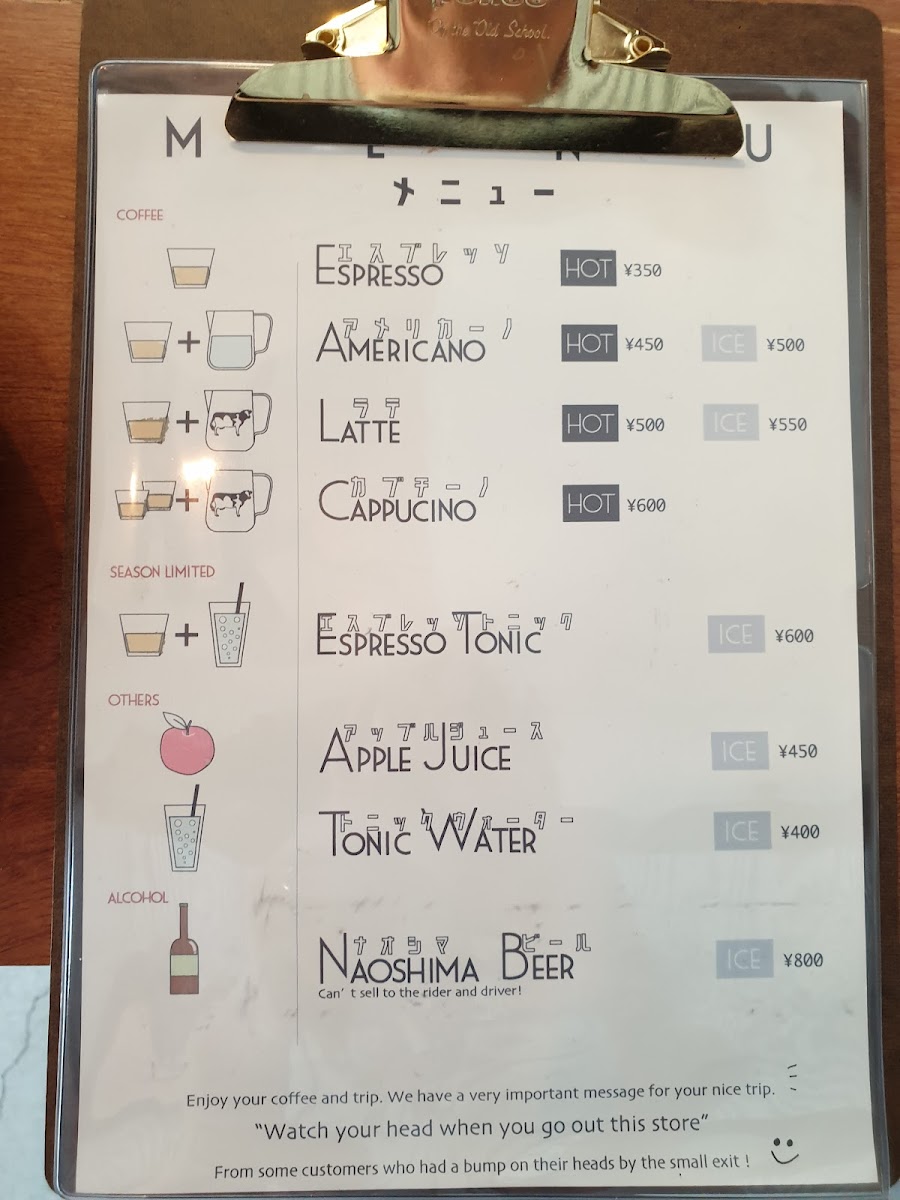 of the Old School.
MENU
メニュー
COFFEE
エスプレッソ
ESPRESSO HOT ¥350
アメリカーノ
AMERICANO HOT ¥450 ICE ¥500
ラテ
LATTE HOT ¥500 ICE ¥550
カプチーノ
CAPPUCINO HOT ¥600
SEASON LIMITED
エスプレッソトニック
ESPRESSO TONIC ICE ¥600
OTHERS
アップルジュース
APPLE JUICE ICE ¥450
トニックウォーター
TONIC WATER ICE ¥400
ALCOHOL
ナオシマビール
NAOSHIMA BEER ICE ¥800
Can't sell to the rider and driver!
Enjoy your coffee and trip. We have a very important message for your nice trip.
"Watch your head when you go out this store"
From some customers who had a bump on their heads by the small exit !